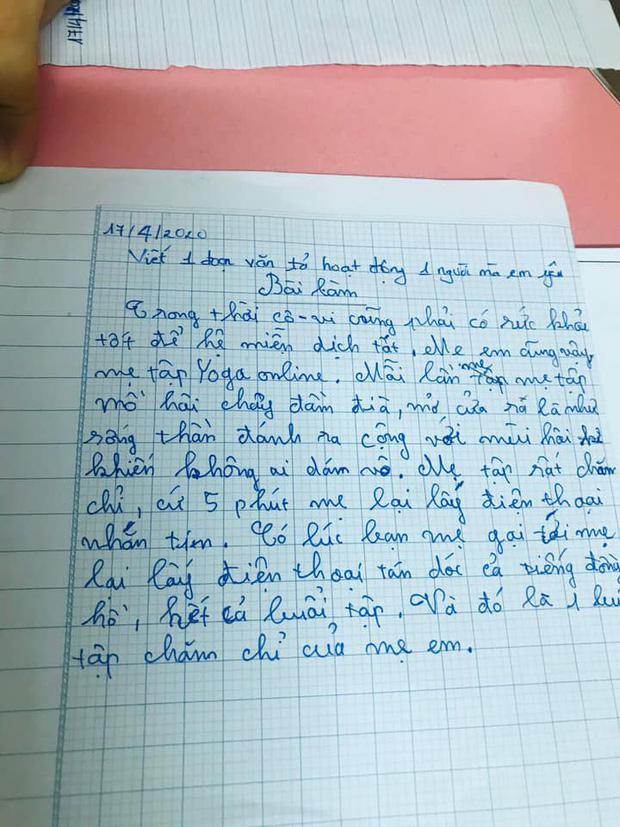 17/4/20
17/4/2020
Viết 1 đoạn văn tả hoạt động 1 người mà em yêu
Bài làm
Trong thời cô-vi cũng phải có sức khỏe
tốt để hệ miễn dịch tốt. Mẹ em cũng vậy
mẹ tập Yoga online. Mỗi lần mẹ tập
mồ hôi chảy đầm đìa, mở cửa ra là như
sóng thần đánh ra cộng với mùi hôi
khiến không ai dám vô. Mẹ tập rất chăm
chỉ, cứ 5 phút mẹ lại lấy điện thoại
nhắn tin. Có lúc bạn mẹ gọi tới mẹ
lại lấy điện thoại tán dóc cả tiếng đồng
hồ, hết cả buổi tập. Và đó là 1 buổi
tập chăm chỉ của mẹ em.